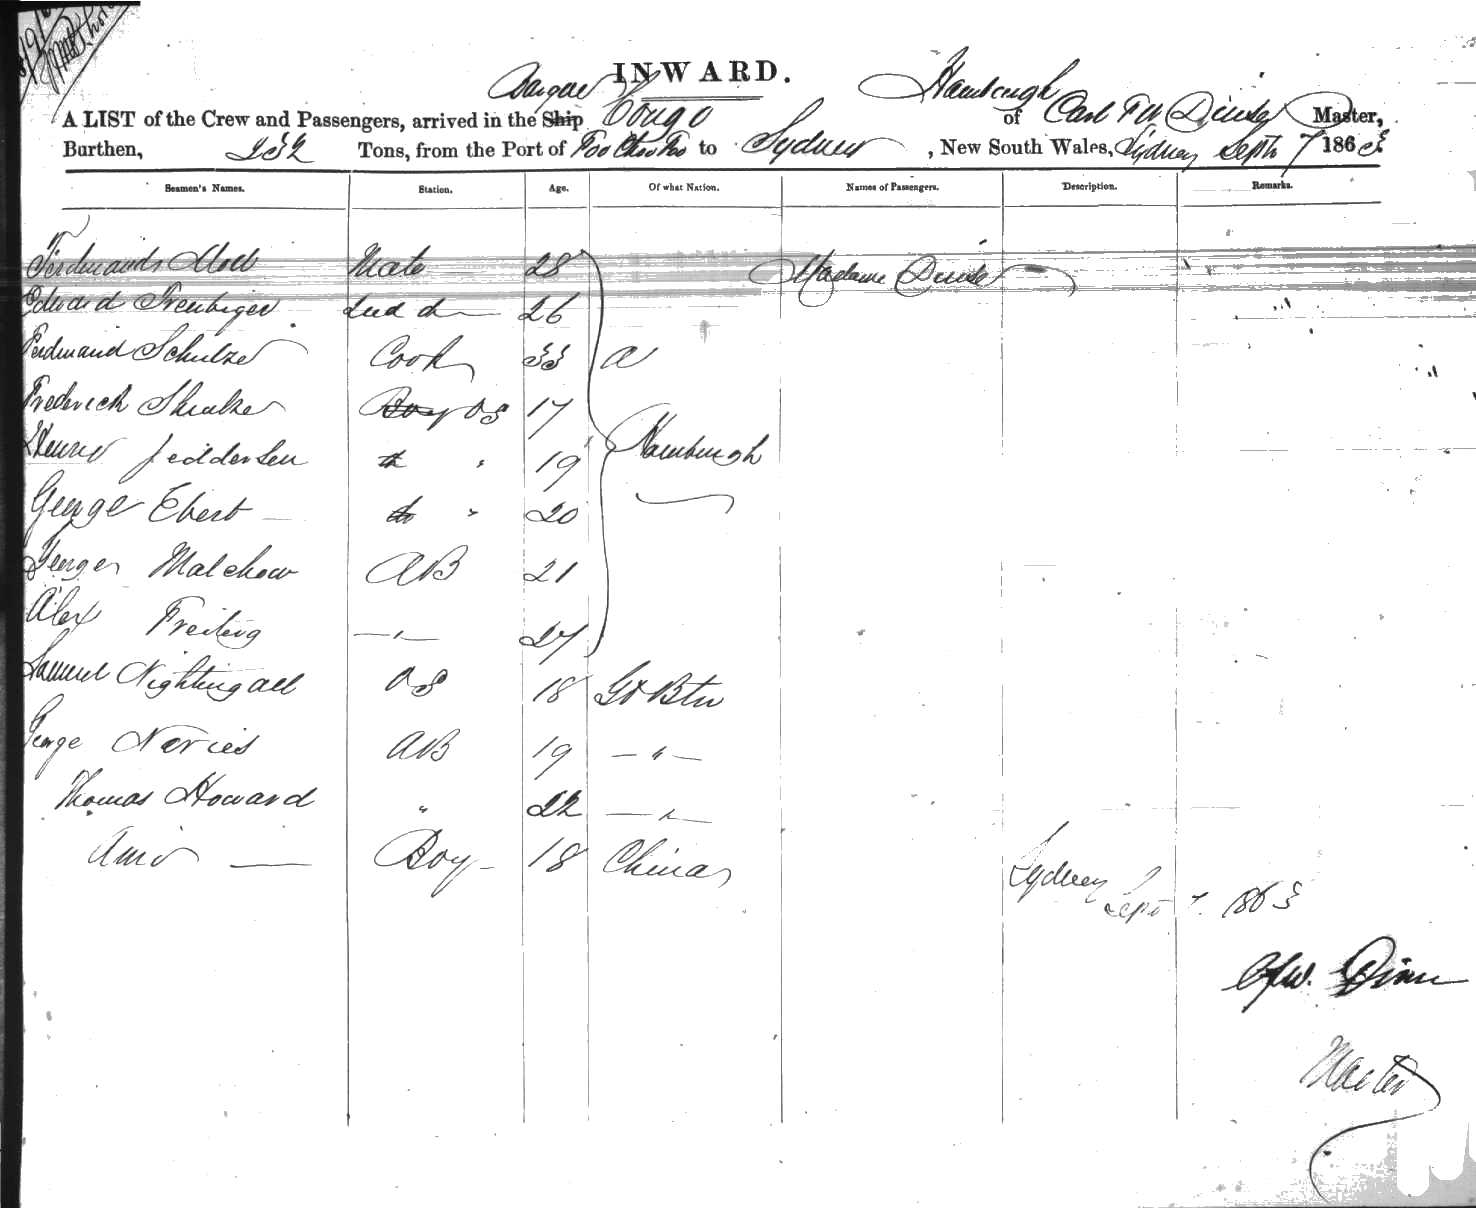 INWARD.
Barque Hamburgh
A LIST of the Crew and Passengers, arrived in the Ship Congo of Carl F W Master,
Burthen, 332 Tons, from the Port of Foo Choo Foo to Sydney, New South Wales, Sydney Septr 7 1863
Seamen's Names. Station. Age. Of what Nation. Names of Passengers. Description. Remarks.
Mate 28 Madame
Edward 26
Ferdinand Schulze Cook 33 a
Frederick Boy OS 17
Henry Feddersen do " 19 Hamburgh
George Ebert do " 20
Malchow AB 21
Alex Freitag —"— 27
Samuel Nightingall OS 18 Gt Btn
George AB 19 —"—
Thomas Howard " 22 —"—
Boy 18 China
Sydney
Sept 7. 1863
CFW.
Master